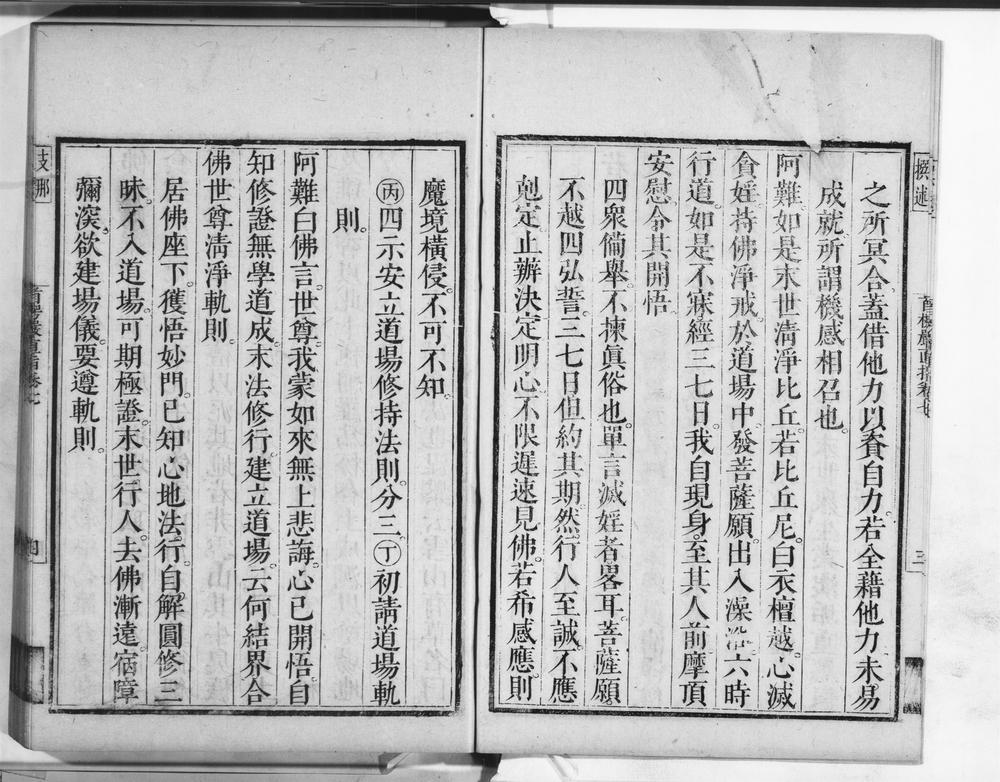 撰述
首楞嚴直指卷七
三
之所冥合蓋借他力以資自力若全藉他力未易
成就所謂機感相召也。
阿難如是末世清淨比丘。若比丘尼。白衣檀越。心滅
貪婬。持佛淨戒。於道場中。發菩薩願。出入澡浴。六時
行道。如是不寐。經三七日。我自現身。至其人前。摩頂
安慰。令其開悟。
四衆備舉。不揀眞俗也。單言滅婬者畧耳。菩薩願
不越四弘誓。三七日但約其期。然行人至誠。不應
剋定止辦決定明心。不限遲速見佛。若希感應。則
魔境橫侵。不可不知。
㊅四示安立道場修持法則。分三㊀初請道場軌
則。
阿難白佛言。世尊。我蒙如來無上悲誨。心已開悟。自
知修證無學道成。末法修行。建立道場。云何結界。合
佛世尊清淨軌則。
居佛座下。獲悟妙門。已知心地法行。自解圓修三
昧。不入道場。可期極證。末世行人。去佛漸遠。宿障
彌深。欲建場儀。要遵軌則。
支那
首楞嚴直指卷七
四